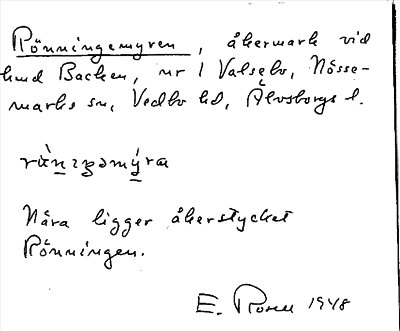 Rönningemyren, åkermark vid
lmd Backen, nr 1 Valsebo, Nösse-
marks sn, Vedbo hd, Älvsborgs l.
Nära ligger åkerstycket
Rönningen.
E. Rosell 1948